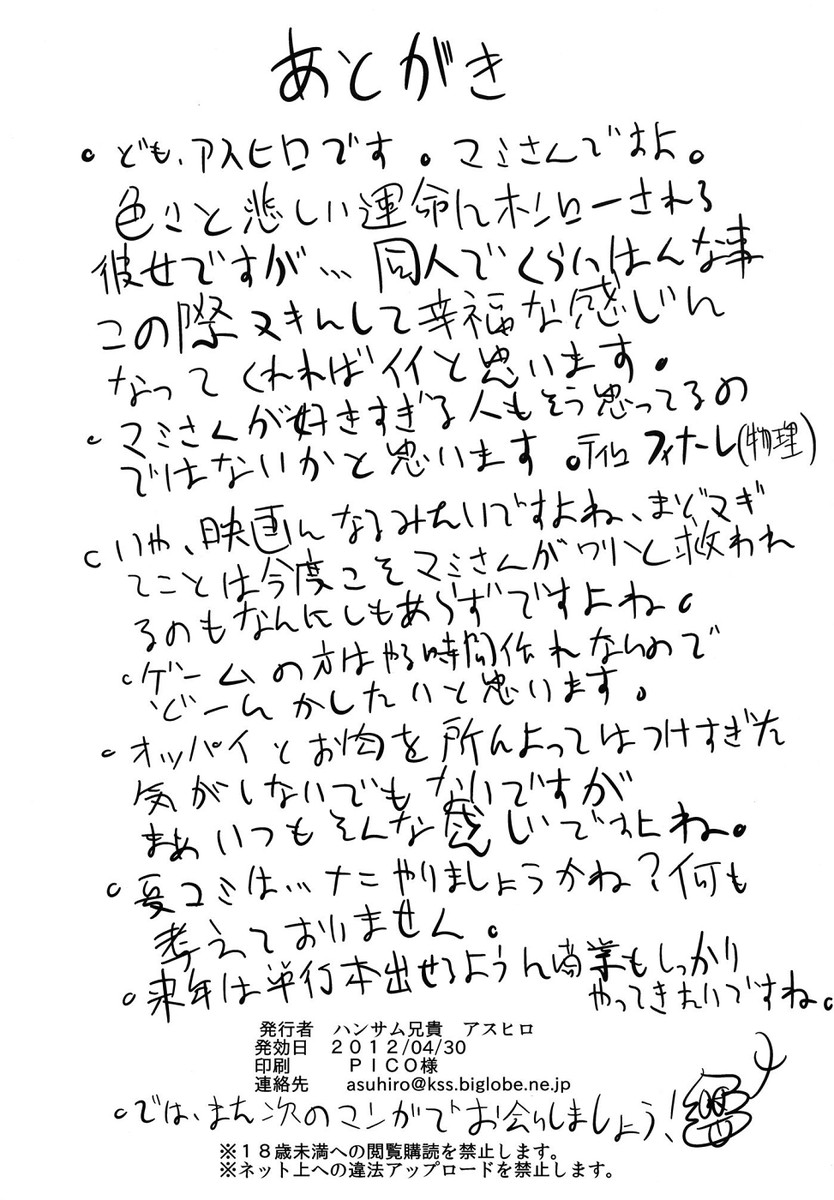 あとがき
。ども、アスヒロです。マミさんですよ。
色々と悲しい運命にホンローされる
彼女ですが… 同人でくらいはんな事
この際ヌキにして幸福な感じに
なってくれればイイと思います。
。マミさんが好きすぎる人もそう思ってるの
ではないかと思います。ティロ フィナーレ(物理)
。いや、映画になるみたいですよね、まどマギ
てことは今度こそマミさんがワリと救われ
るのもなんにしもあらずですよね。
。ゲームの方はやる時間作れないので
どーにかしたいと思います。
。オッパイとお肉を所によってはつけすぎた
気がしないでもないですが
まぁいつもそんな感じですよね。
。夏コミは…ナニやりましょうかね?何も
考えておりません。
。来年は単行本出せるように商業もしっかり
やってきたいですね。
発行者 ハンサム兄貴 アスヒロ
発効日 2012/04/30
印刷 PICO様
連絡先 asuhiro@kss.biglobe.ne.jp
。では、また次のマンガでお会いしましょう!
※18歳未満への閲覧購読を禁止します。
※ネット上への違法アップロードを禁止します。